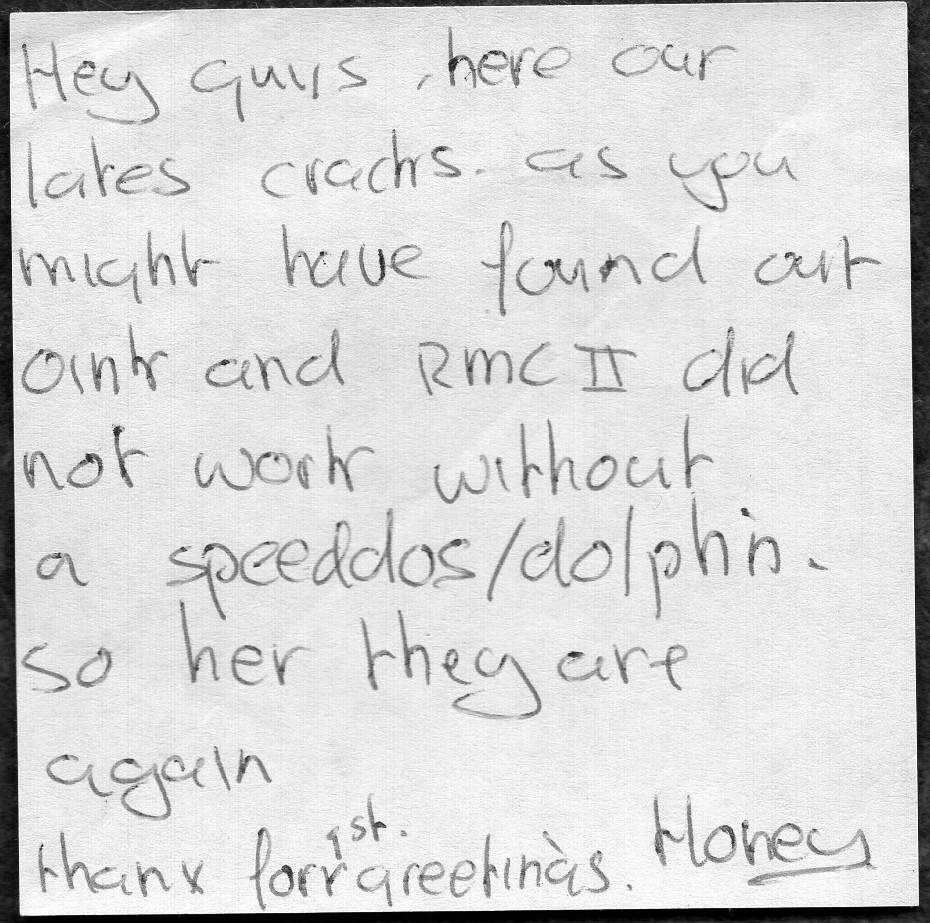 Hey guys, here our
lates cracks. as you
might have found out
oink and RMC II did
not work without
a speeddos/dolphin.
so her they are
again
thanx forr 1st. greetings. Honey